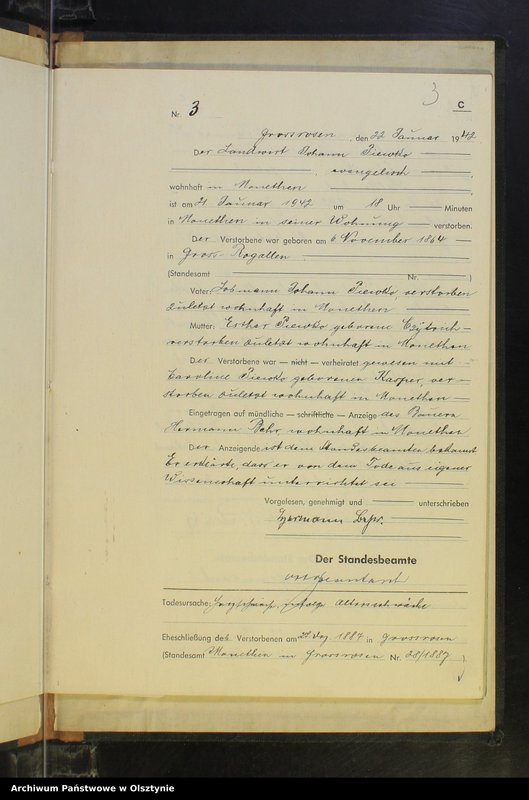 3
C
Nr. 3
Grossrosen, den 22 Januar 1942
Der Landwirt Johann Piewko
evangelisch
wohnhaft in Monethen
ist am 21 Januar 1942 um 18 Uhr Minuten
in Monethen in seiner Wohnung verstorben.
Der Verstorbene war geboren am 6 November 1864
in Gross Rogallen
(Standesamt Nr. )
Vater: Losmann Johann Piewko, verstorben
zuletzt wohnhaft in Monethen
Mutter: Esther Piewko geborene
verstorben zuletzt wohnhaft in Monethen
Der Verstorbene war — nicht — verheiratet gewesen mit
Karoline Piewko geborenen Kasper, ver-
storben zuletzt wohnhaft in Monethen
Eingetragen auf mündliche — schriftliche — Anzeige des Bauern
Hermann wohnhaft in Monethen
Der Anzeigende ist dem Standesbeamten bekannt
Er erklärte, dass er von dem Tode aus eigener
Wissenschaft unterrichtet sei
Vorgelesen, genehmigt und unterschrieben
Hermann
Der Standesbeamte
Todesursache: Herzschwäche infolge Altersschwäche
Eheschließung des Verstorbenen am 1887 in Grossrosen
(Standesamt Monethen in Grossrosen Nr. 28/1887 )
Archiwum Państwowe w Olsztynie